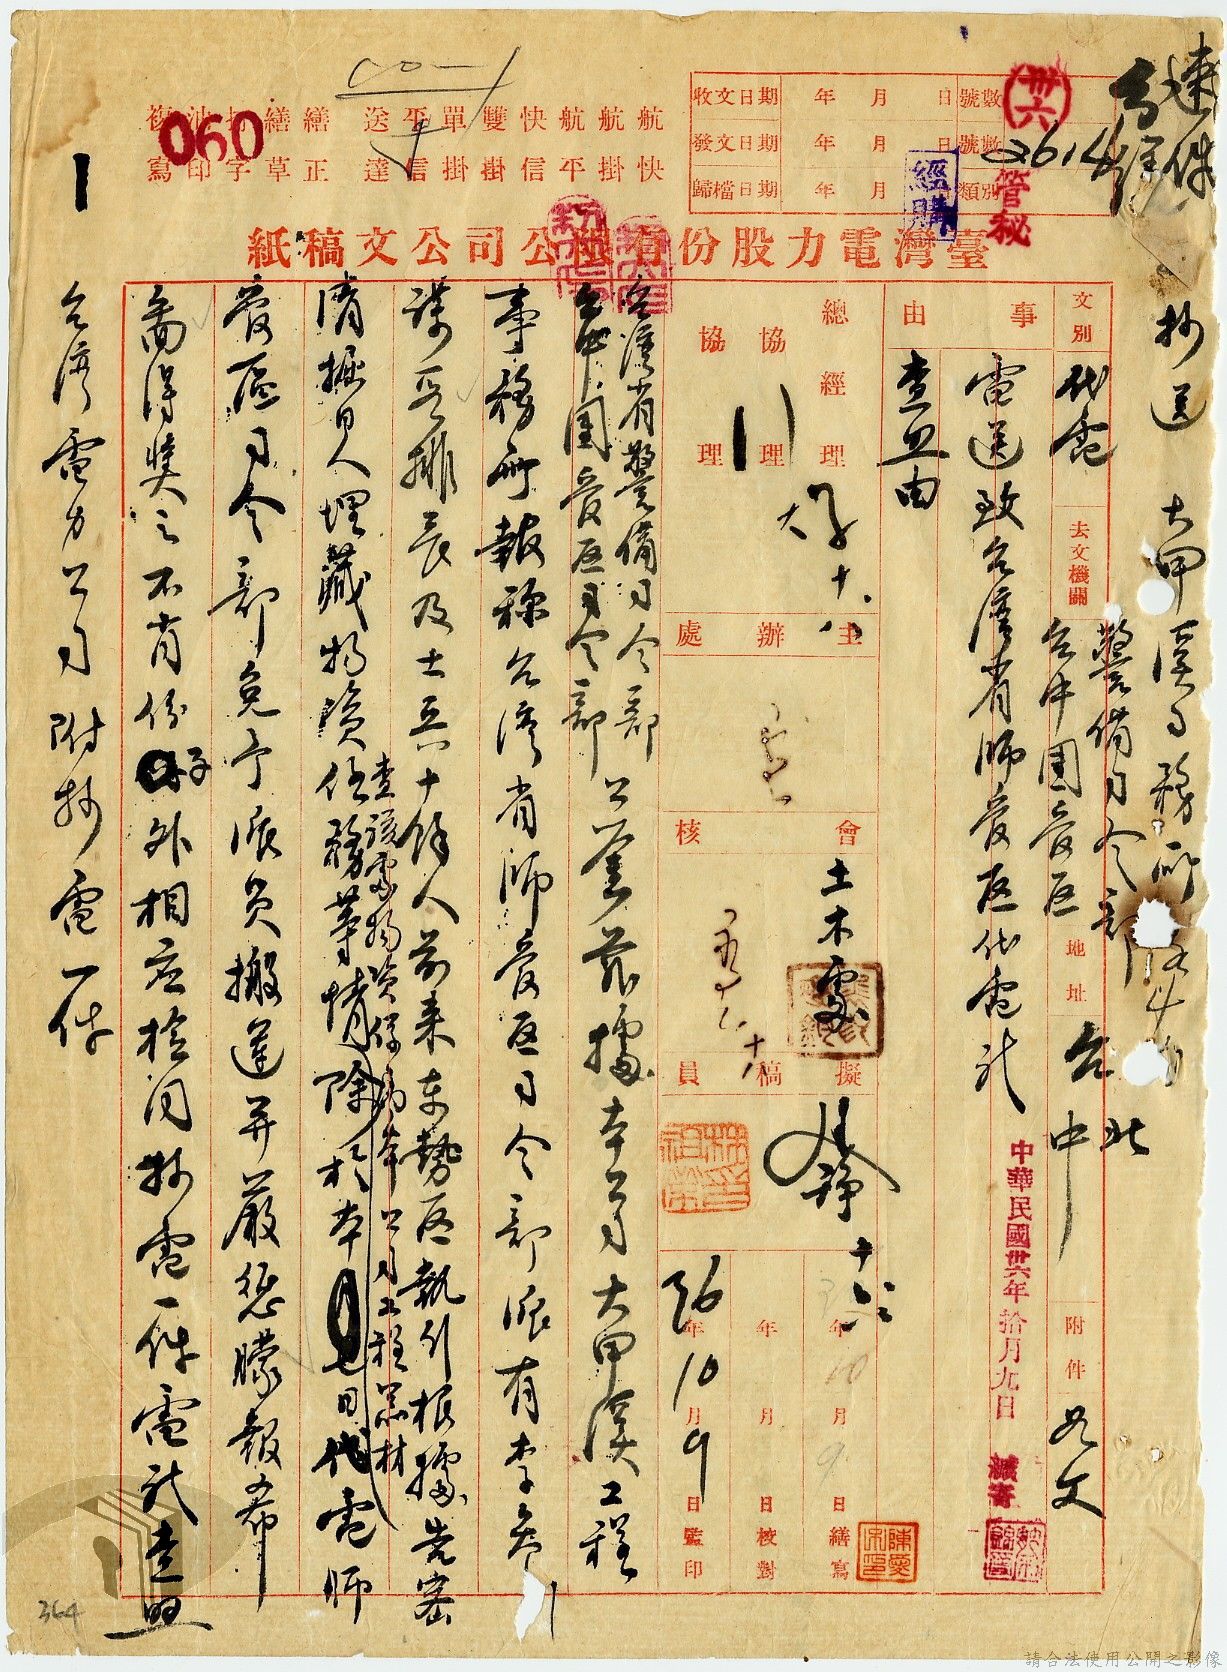 速件
抄送 大甲溪工務所
卅六
2614
管秘
經購
收文日期 年 月 日 號數
發文日期 年 月 日 號數
歸檔日期 年 月 類別
航快 航掛 航平 快信 雙掛 單掛 平信 送達 繕正 繕草 打字 油印 複寫
060
臺灣電力股份有限公司公文稿紙
文別 代電
去文機關 警備司令部 台中團管區
地址 台北 台中
附件 如文
事由
電送致台灣省師管區代電祈
查照由
中華民國卅六年拾月九日
總經理
協理
協理
主辦處
會核 土木處
擬稿員
年 月 日 繕寫
年 月 日 校對
36年10月9日 監印
台灣省警備司令部
台中團管區司令部 公鑒茲據本公司大甲溪工程
事務所報稱台灣省師管區司令部派有李參
謀吳排長及士兵八十餘人前來東勢區執行根據告密
清掘日人埋藏物資任務等情
查該處物資係為本公司工程器材
除於本月七日代電師
管區司令部免予派員搬運并嚴懲矇報希
圖得獎之不肖份子外相应檢同抄電一件電祈查照
台湾電力公司 附抄電一件
364
請合法使用公開之影像